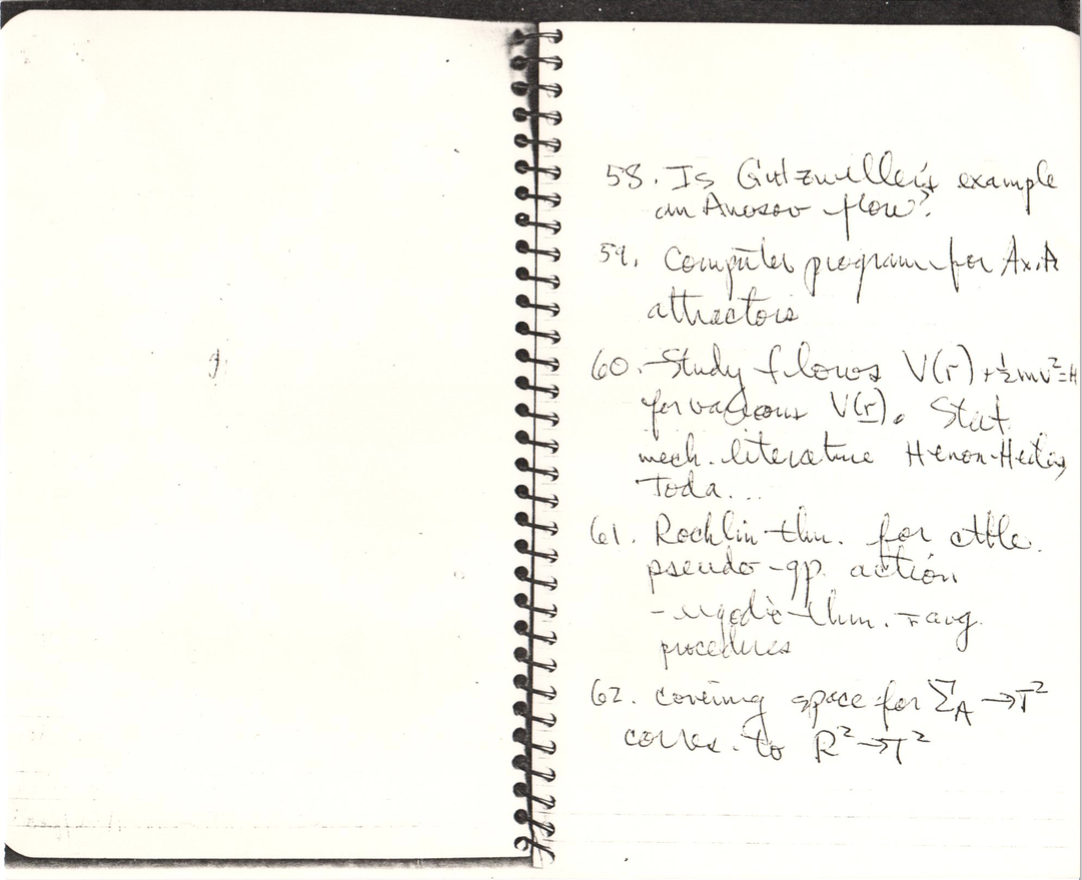 58. Is Gutzwiller's example
an Anosov flow?
59. Computer program for Ax.A
attractors
60. Study flows V(r)+½mv²=H
for various V(r). Stat.
mech. literature Henon-Heiles,
Toda...
61. Rochlin thm. for ctble.
pseudo-gp. action
- ergodic thm. avg.
procedures
62. covering space for Σ_A → T²
corres. to R² → T²